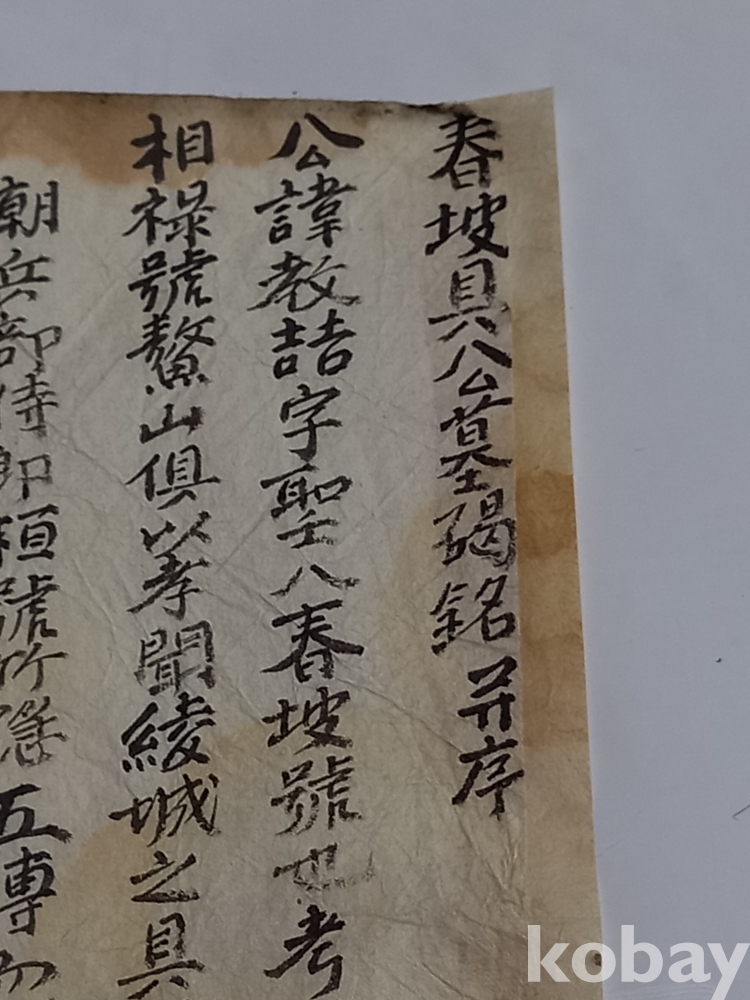 春坡具公墓碣銘 并序
公諱教喆字聖八春坡號也考
相祿號鰲山俱以孝聞綾城之具
朝兵部侍郎 號竹隱五專
kobay